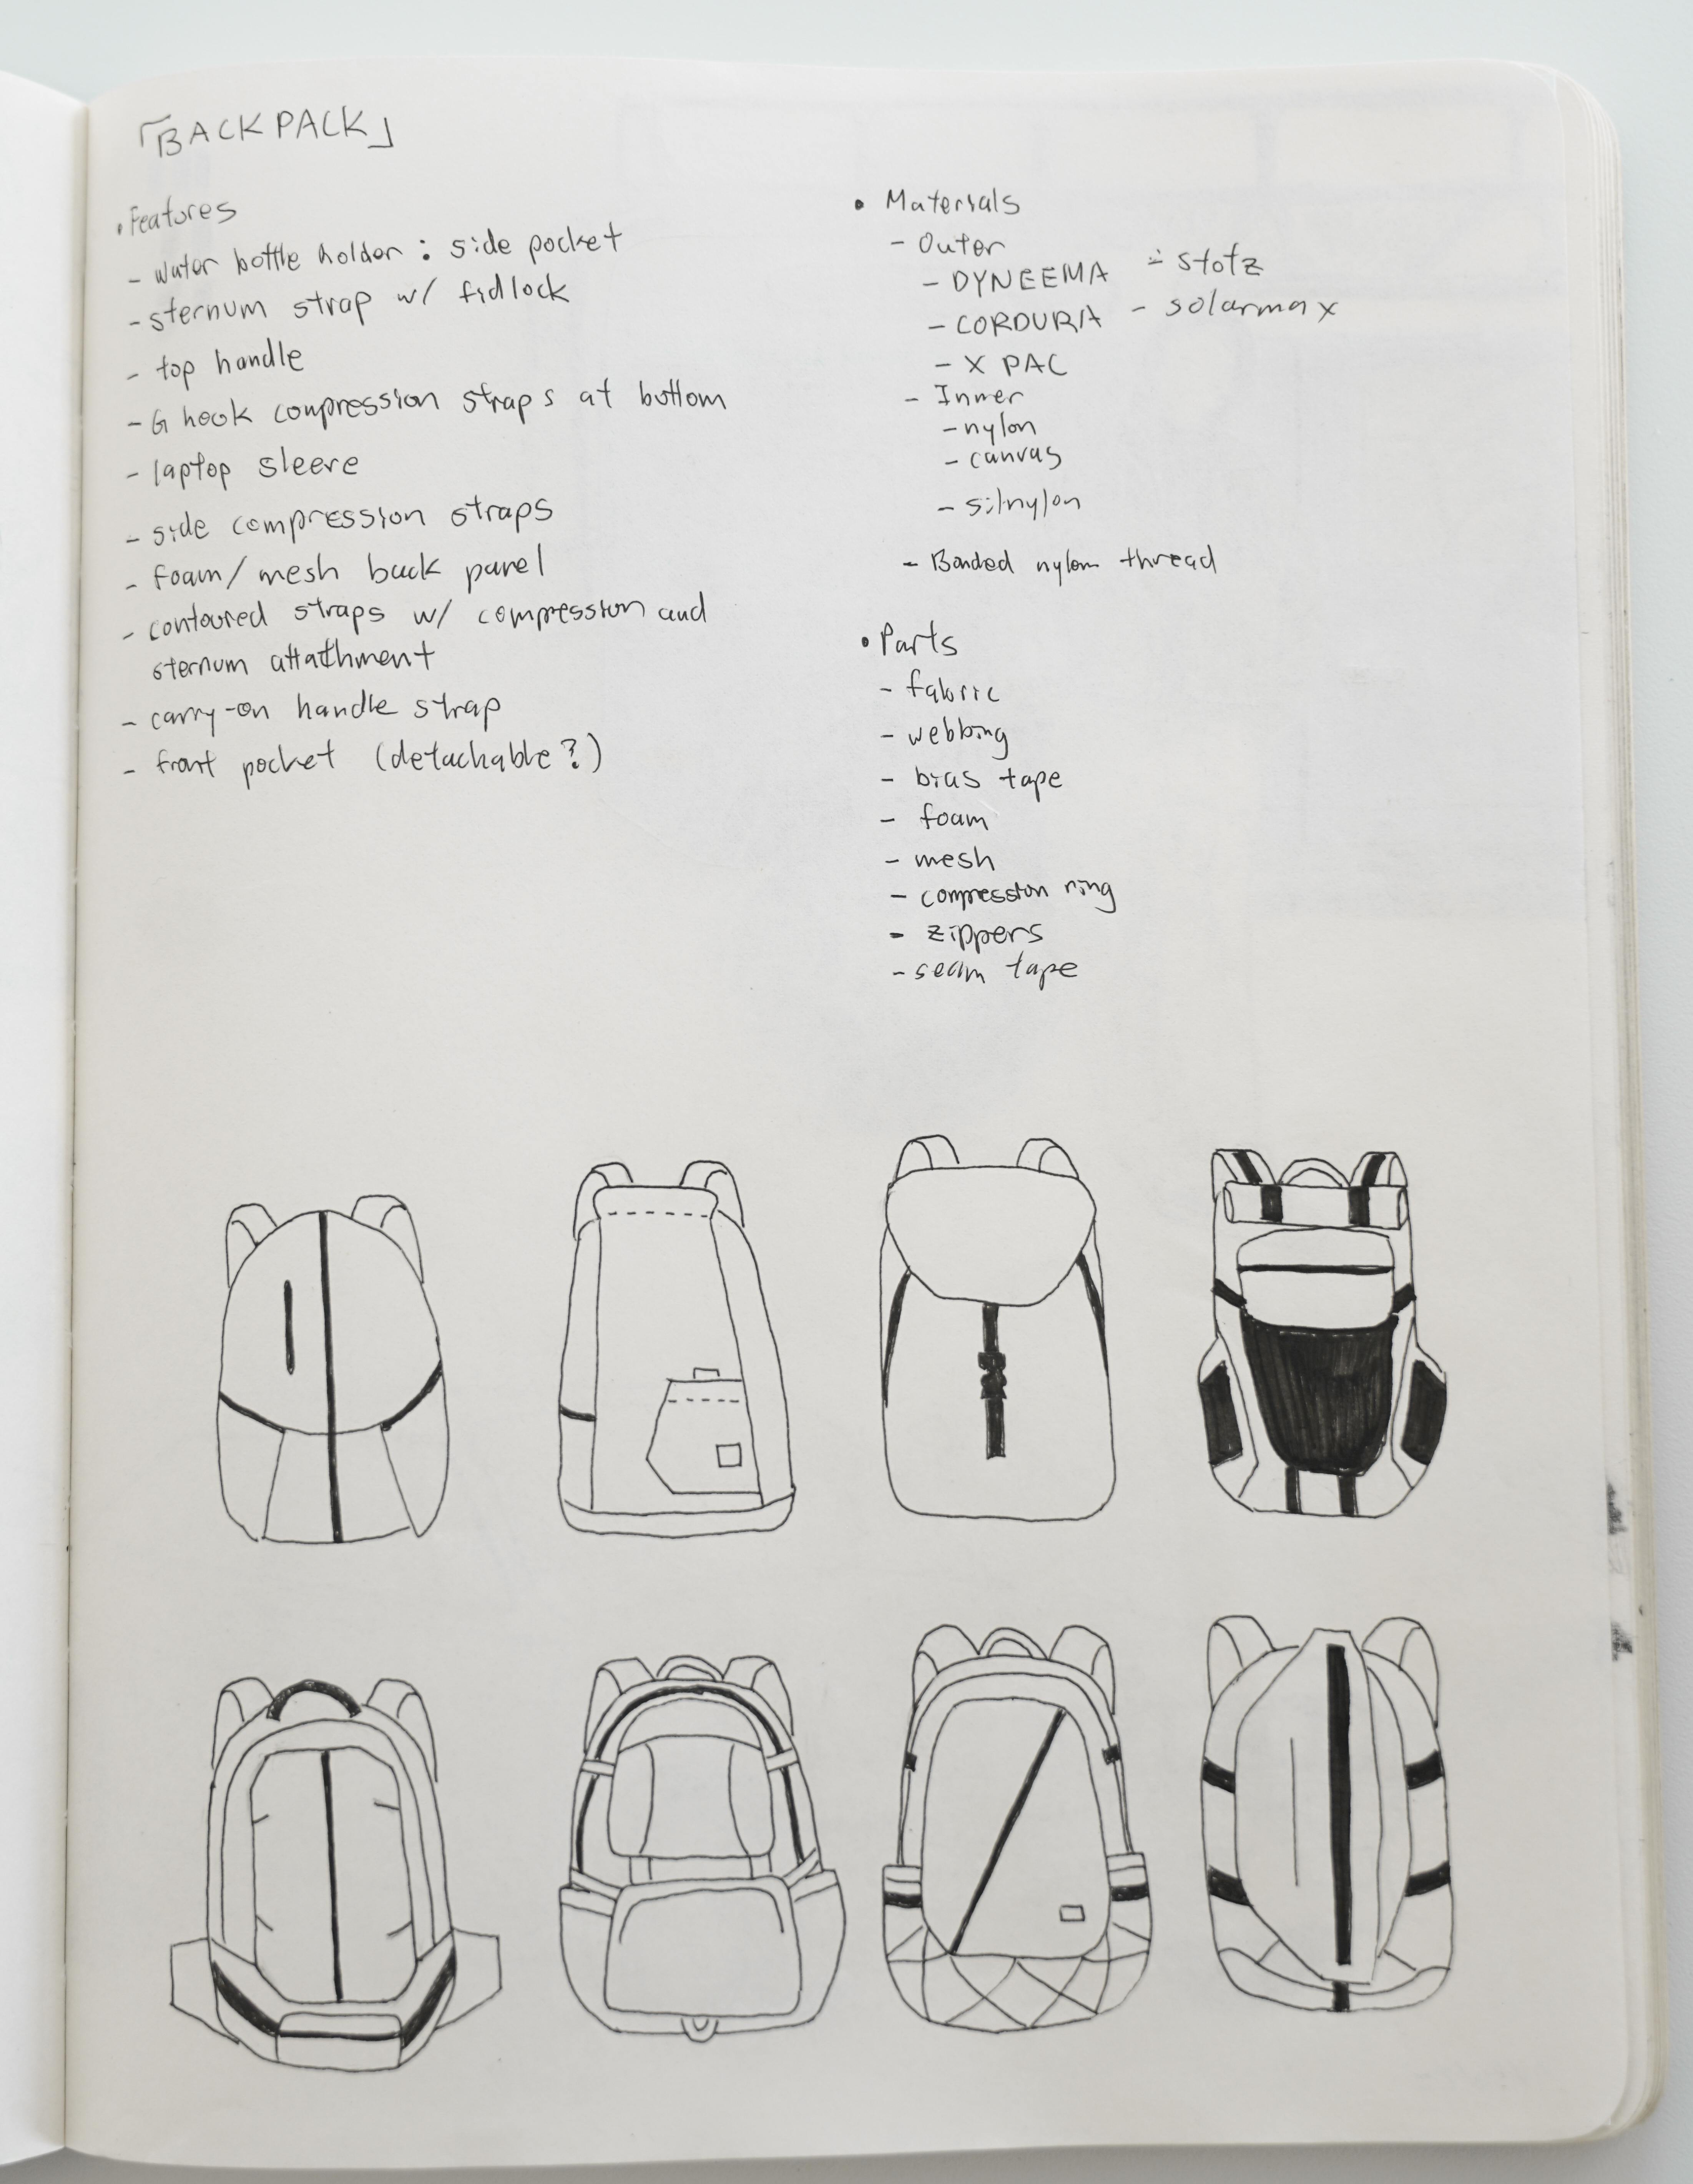 「BACKPACK」
• Features
- water bottle holder : side pocket
- sternum strap w/ fidlock
- top handle
- G hook compression straps at bottom
- laptop sleeve
- side compression straps
- foam/mesh back panel
- contoured straps w/ compression and
sternum attachment
- carry-on handle strap
- front pocket (detachable?)
• Materials
- Outer
- DYNEEMA - stotz
- CORDURA - solarmax
- X PAC
- Inner
- nylon
- canvas
- silnylon
- Bonded nylon thread
• Parts
- fabric
- webbing
- bias tape
- foam
- mesh
- compression ring
- zippers
- seam tape